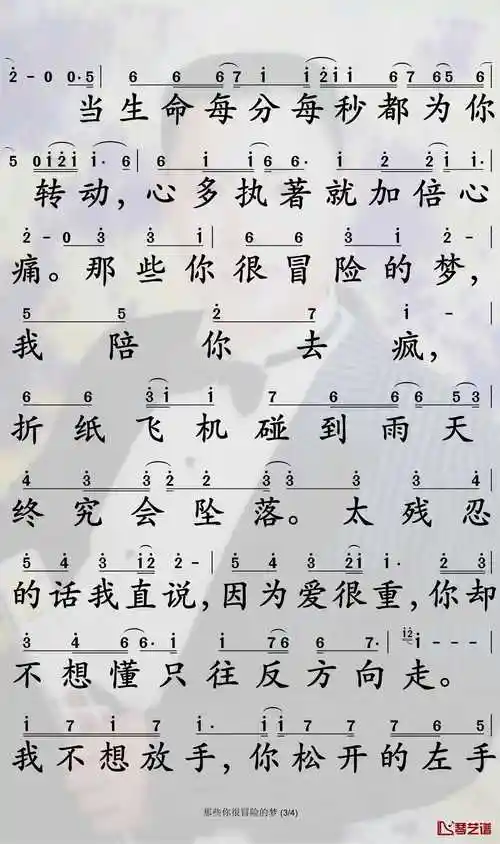 2 - 0 0·5 6 6 67 i i2ii 67 656
当生命每分每秒都为你
5 0i2i i· 6 6 i i6 6· i 2 6i i
转动，心多执著就加倍心
2 - 0 3 3 i 6 6 3 i 2
痛。那些你很冒险的梦，
5 5 2 7 i -
我陪你去疯，
6 6 3i i 7 6 66 53
折纸飞机碰到雨天
4 3 32 2 23 3 3 4
终究会坠落。太残忍
5 4 3 i2 2 - 54 3 2i i· 2 3
的话我直说，因为爱很重，你却
3 4 6 66· i i 76 6 7· i2i - - -
不想懂只往反方向走。
i 7 i 7 7i i· i i 7 7 7 6 5
我不想放手，你松开的左手
那些你很冒险的梦 (3/4)
琴艺谱